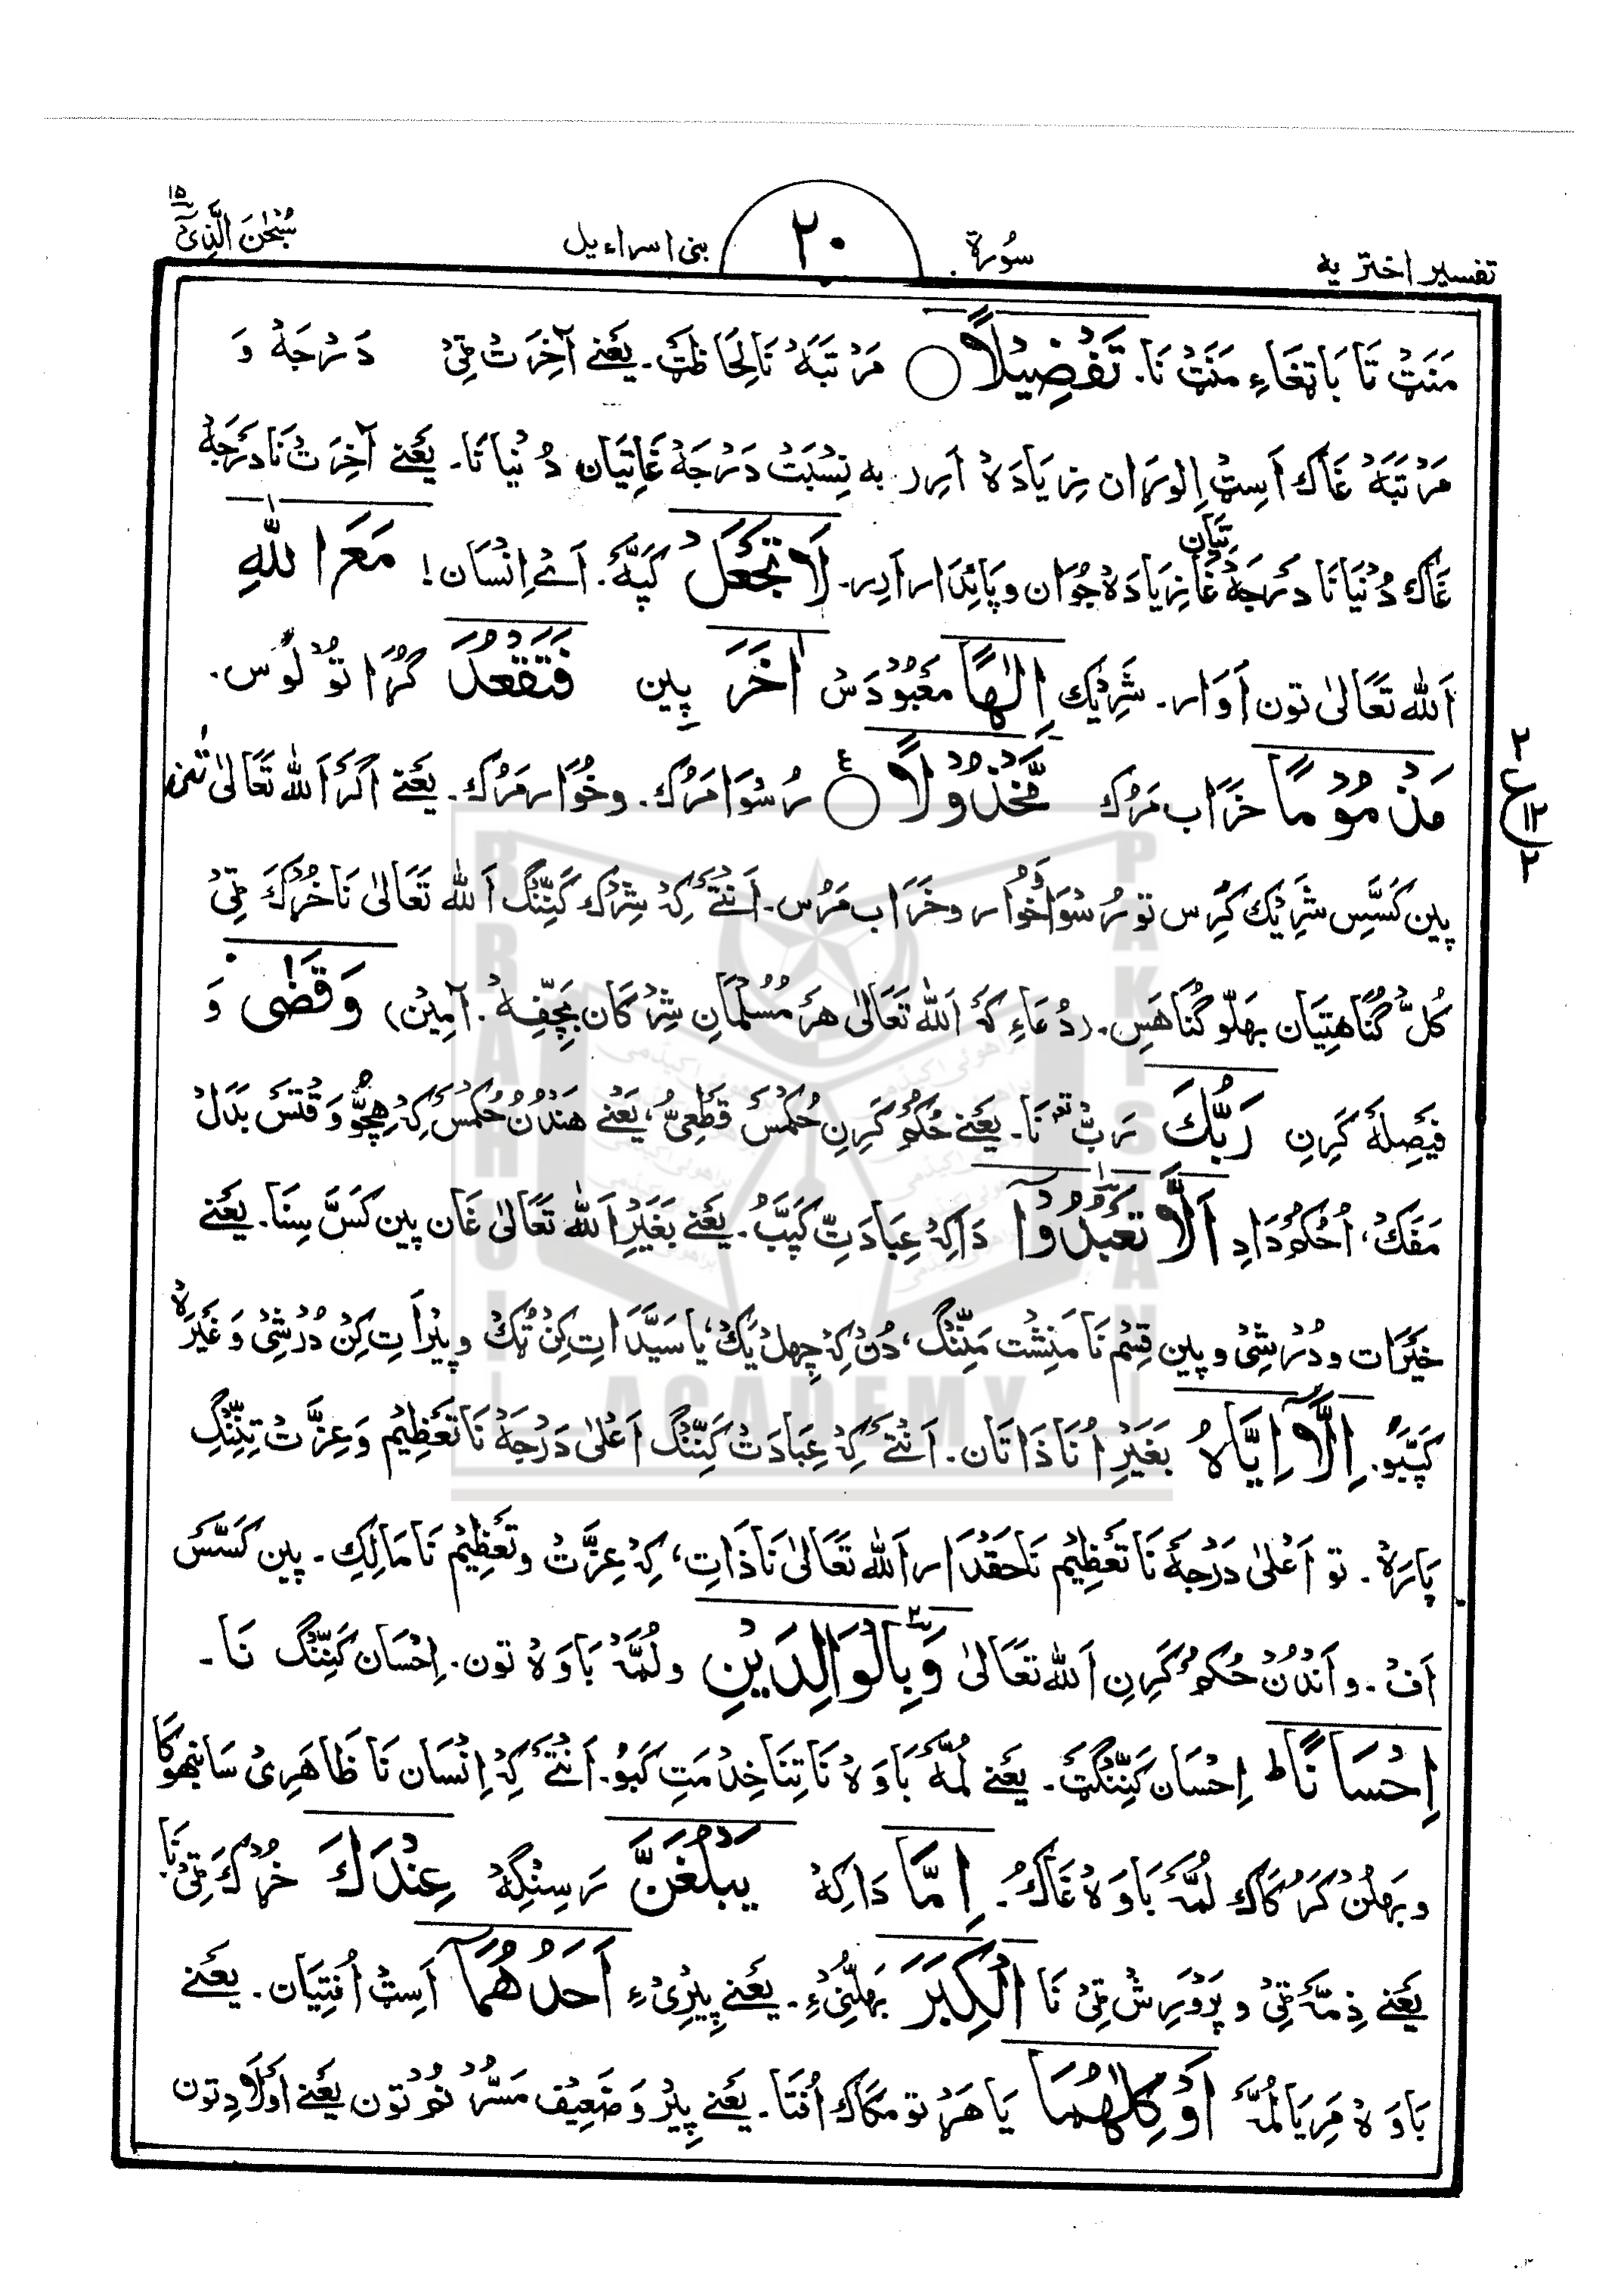 تفسیر اختریه سُورة ۲۰ بنی اسراءیل سُبْحٰنَ الَّذِیْۤ ۱۵
مَنَتْ تَا بَاتغَاءِ مَنَتْ نَا۔ تَفْضِیْلًا ○ مَرْتَبَهْ نَا لِحَاظَتْ۔ یَعْنے آخِرَتْ ٹِیْ دَرْجَهْ وَ
مَرْتَبَهْ غَاک اَسِٹ اِلوِرَان زِیَادَهْ اَرِر بہ نِسْبَتْ دَرْجَهْ غَاتِیَان دُنْیَا نَا۔ یَعْنے آخِرَتْ نَا دَرَجَهْ
غَاک دُنْیَا نَا دَرَجَهْ غَاتِیَان زِیَادَهْ جُوَان و پَائِدَار اَرِر۔ لَا تَجْعَلْ کَپَّهْ۔ اَےْ اِنْسَان! مَعَ اللّٰهِ
اَللّٰه تَعَالیٰ تون اَوَار۔ شَرِیْک اِلٰهًا مَعْبُوْدَسْ اٰخَرَ پِین فَتَقْعُدَ گُڑَا تُوْلُوْس۔
مَذْمُوْمًا خَرَاب مَرُک مَّخْذُوْلًا ○ ع رُسْوَا مَرُک۔ وخُوَار مَرُک۔ یَعْنے اَگَرْ اَللّٰه تَعَالیٰ تُن
پِین کَسَّسِ شَرِیْک کَرِس تو رُسْوَا خُوَار و خَرَاب مَرُس۔ اَنْتَےْ کِهْ شِرْک کَنِّنْگ اَللّٰه تَعَالیٰ نَا خُرُکَ ٹِیْ
کُلّ گُنَاهتِیَان بَهلّو گُنَاهَسِ۔ (دُعَاءِ کَهْ اَللّٰه تَعَالیٰ هَرْ مُسُلْمَانِ شِرْکَان بَچِّفِهْ۔ آمِیْن) وَقَضٰی وَ
فَیْصِلَهْ کَرِن رَبُّكَ رَبّ نَا۔ یَعْنے حُکم کَرِن حُکْمَسْ قَطْعِیّ، یَعْنے هَنْدُنْ حُکْمَسْ کِهْ هِچّو وَقْتَسْ بَدَلْ
مَفَکْ، اُحُکْم دَادِ اَلَّا تَعْبُدُوْۤا دَاکِهْ عِبَادَتِ کَپَبْ۔ یَعْنے بَغَیْرِ اَللّٰه تَعَالیٰ غَان پِین کَسَّسِنَا۔ یَعْنے
خَیْرَات و دُرْشِیْ و پِین قِسْم نَا مَنِشْت مَنِّنْگ، دُنْ کِهْ چِهل یَک، یَا سَیَّدَاتِ کِنْ ٹُک وپِیْرَاتِ کِنْ دُرْشِیْ وَغَیْرَهْ
کَپَّبَو۔ اِلَّاۤ اِیَّاهُ بَغَیْرِ اُنَا ذَاتَان۔ اَنْتَےْ کِهْ عِبَادَتْ کَنِّنْگ اَعْلیٰ دَرْجَهْ نَا تَعْظِیْم وَ عِزَّتْ تِنِّنْگِ
پَارَهْ۔ تو اَعْلیٰ دَرْجَهْ نَا تَعْظِیْم نَا حَقْدَار اَللّٰه تَعَالیٰ نَا ذَاتِ، کِهْ عِزَّتْ و تَعْظِیْم نَا مَالِکِ۔ پِین کَسَّسْ
اَفْ۔ و اَنْدُنْ حُکم کَرِن اَللّٰه تَعَالیٰ وَبِالْوَالِدَیْنِ و لُمَّهْ بَاوَهْ تون۔ اِحْسَان کَنِّنْگ نَا۔
اِحْسَانًا ط اِحْسَان کَنِّنْگَٹ۔ یَعْنے لُمَّهْ بَاوَهْ نَا تِنَا خِدْمَتِ کَبَوْ۔ اَنْتَےْ کِهْ اِنْسَان نَا ظَاهِرِیْ سَانبھوکَا
و بَهلُنْ کَرْکَاک لُمَّهْ بَاوَهْ غَاکُ۔ اِمَّا دَاکِهْ یَبْلُغَنَّ رَسِنْگِهْ عِنْدَكَ خُرُکَ ٹِیْ نَا
یَعْنے ذِمَّهْ ٹِیْ و پَرْوَرِشْ ٹِیْ نَا الْكِبَرَ بَهلُنِّیْءِ۔ یَعْنے پِیْرِیْءِ اَحَدُهُمَاۤ اَسِٹ اُفْتِیَان۔ یَعْنے
بَاوَهْ مَرِ یَا لُمَّهْ اَوْ كِلٰهُمَا یَا هَرْ تو مَکَاک اُفْتَا۔ یَعْنے پِیْر وَ ضَعِیْف مَسُّرْ نُم تون یَعْنے اَوْلَادِ تون
BRAHUI ACADEMY PAKISTAN